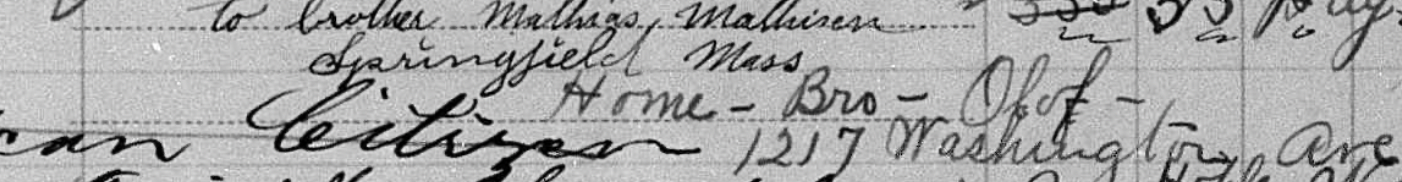 to brother Mathias Mathisen
Springfield Mass
Home - Bro - Olof -
can Citizen 1217 Washington Ave